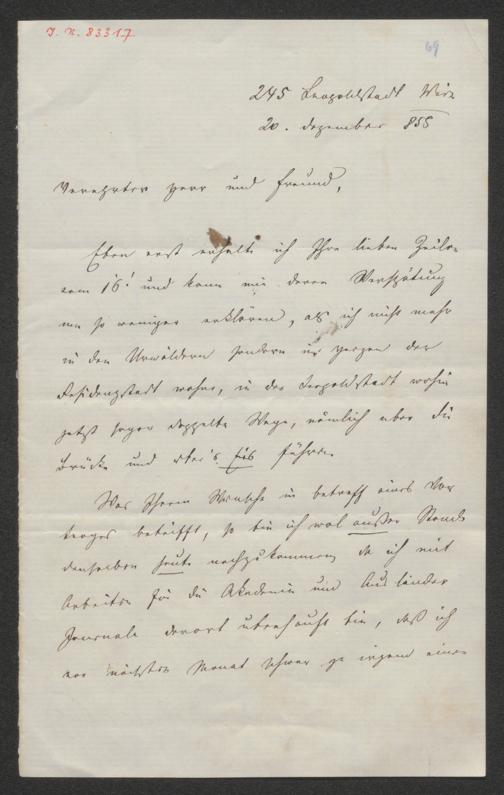 I. N. 83317
69
245 Leopoldstadt Wien
20. Dezember 855
Verehrter Herr und Freund,
Eben erst erhalte ich Ihre lieben Zeilen
vom 16t und kann mir deren Verspätung
um so weniger erklären, als ich nicht mehr
in den Urwäldern sondern im Herzen der
Residenzstadt wohne, in der Leopoldstadt wohin
jetzt sogar doppelte Wege, nämlich über die
Brücke und über's Eis führen.
Was Ihren Wunsch in betreff eines Vor
trages betrifft, so bin ich wol außer Stande
denselben heute nachzukommen, da ich mit
Arbeiten für die Akademie und Ausländer
Journale derart überhäuft bin, daß ich
vor nächsten Monat schwer zu irgend einer